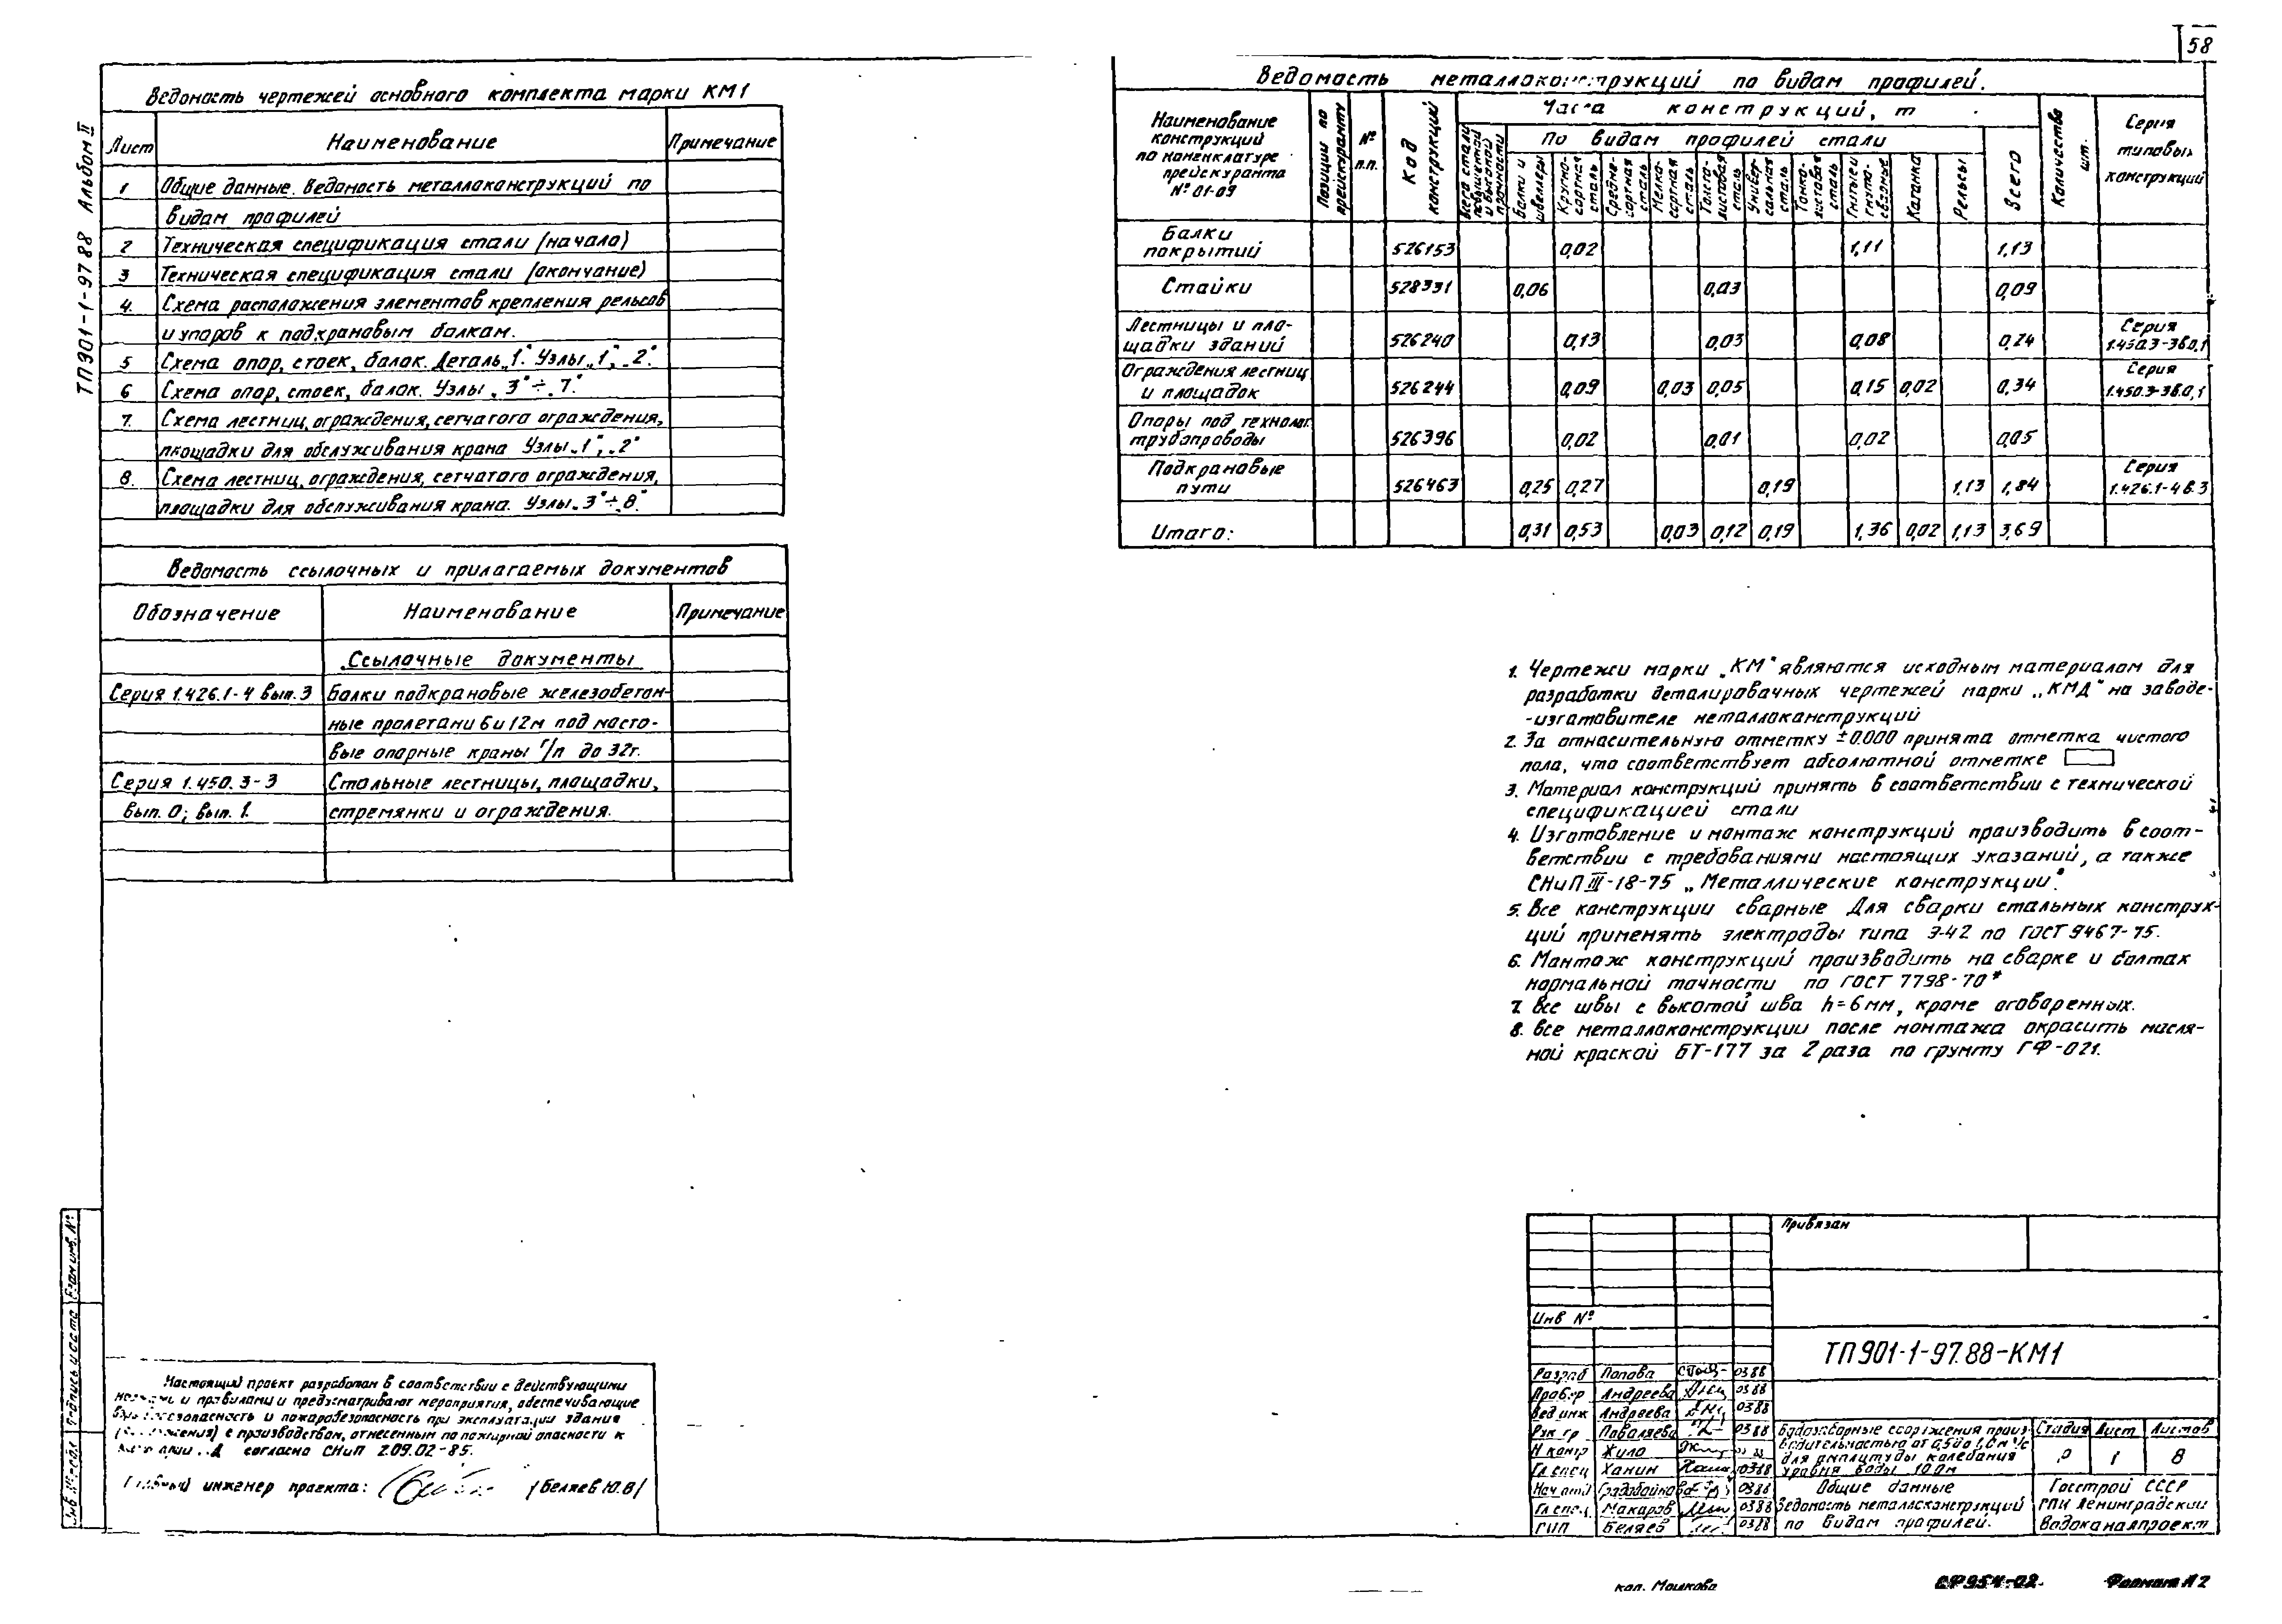 58
ТП901-1-97.88 Альбом II
Ведомость чертежей основного комплекта марки КМ1
Лист Наименование Примечание
1 Общие данные. Ведомость металлоконструкций по
видам профилей
2 Техническая спецификация стали (начало)
3 Техническая спецификация стали (окончание)
4. Схема расположения элементов крепления рельсов
и упоров к подкрановым балкам.
5 Схема опор, стоек, балок. Деталь „1". Узлы „1", „2".
6 Схема опор, стоек, балок. Узлы „3" ÷ „7."
7. Схема лестниц, ограждения, сетчатого ограждения,
площадки для обслуживания крана Узлы „1", „2"
8. Схема лестниц, ограждения, сетчатого ограждения,
площадки для обслуживания крана. Узлы „3" ÷ „8."
Ведомость ссылочных и прилагаемых документов
Обозначение Наименование Примечание
Ссылочные документы
Серия 1.426.1-4 вып. 3 Балки подкрановые железобетон-
ные пролетами 6 и 12м под мосто-
вые опорные краны г/п до 32т.
Серия 1.450.3-3 Стальные лестницы, площадки,
вып. 0; вып. 1. стремянки и ограждения.
Ведомость металлоконструкций по видам профилей.
Наименование конструкций по номенклатуре прейскуранта № 01-09
Позиции по прейскуранту
№ п.п.
Код конструкций
Масса конструкций, т
Всего стали повышенной и высокой прочности
По видам профилей стали
Балки и швеллеры
Крупно-сортная сталь
Средне-сортная сталь
Мелко-сортная сталь
Толсто-листовая сталь
Универ-сальная сталь
Тонко-листовая сталь
Гнутые и гнуто-сварные
Катанка
Рельсы
Всего
Количество шт.
Серия типовых конструкций
Балки покрытий 526153 0,02 1,11 1,13
Стойки 528331 0,06 0,03 0,09
Лестницы и пло-щадки зданий 526240 0,13 0,03 0,08 0,24 Серия 1.450.3-3 в.0,1
Ограждения лестниц и площадок 526244 0,09 0,03 0,05 0,15 0,02 0,34 Серия 1.450.3-3 в.0,1
Опоры под технолог. трубопроводы 526396 0,02 0,01 0,02 0,05
Подкрановые пути 526463 0,25 0,27 0,19 1,13 1,84 Серия 1.426.1-4 в.3
Итого: 0,31 0,53 0,03 0,12 0,19 1,36 0,02 1,13 3,69
1. Чертежи марки „КМ" являются исходным материалом для
разработки деталировочных чертежей марки „КМД" на заводе-
-изготовителе металлоконструкций
2. За относительную отметку ±0.000 принята отметка чистого
пола, что соответствует абсолютной отметке
3. Материал конструкций принять в соответствии с технической
спецификацией стали
4. Изготовление и монтаж конструкций производить в соот-
ветствии с требованиями настоящих указаний, а также
СНиП III-18-75 „Металлические конструкции".
5. Все конструкции сварные Для сварки стальных конструк-
ций применять электроды типа Э-42 по ГОСТ 9467-75.
6. Монтаж конструкций производить на сварке и болтах
нормальной точности по ГОСТ 7798-70*
7. Все швы с высотой шва h=6мм, кроме оговоренных.
8. Все металлоконструкции после монтажа окрасить масля-
ной краской БТ-177 за 2 раза по грунту ГФ-021.
Настоящий проект разработан в соответствии с действующими
и правилами и предусматривает мероприятия, обеспечивающие
взрывобезопасность и пожаробезопасность при эксплуатации здания
(сооружения) с производством, отнесенным по пожарной опасности к
категории „Д согласно СНиП 2.09.02-85.
Главный инженер проекта: (Беляев Ю.В)
Инв № подл Подпись и дата Взам инв. №
Привязан
Инв №
ТП901-1-97.88-КМ1
Разраб Попова 0388
Провер Андреева 0388
Вед инж Андреева 0388
Рук гр Поваляева 0388
Н контр Жило
Гл спец Ханин 0388
Нач отд 0388
Гл спец Макаров 0388
ГИП Беляев 0388
Водозаборные сооружения произ-
водительностью от 0,5 до 1,0 м³/с
для амплитуды колебания
уровня воды 10.0м
Стадия Лист Листов
Р 1 8
Общие данные
Ведомость металлоконструкций
по видам профилей.
Госстрой СССР
ГПИ Ленинградский
Водоканалпроект
коп. Мошкова
СФ954-02
Формат А2